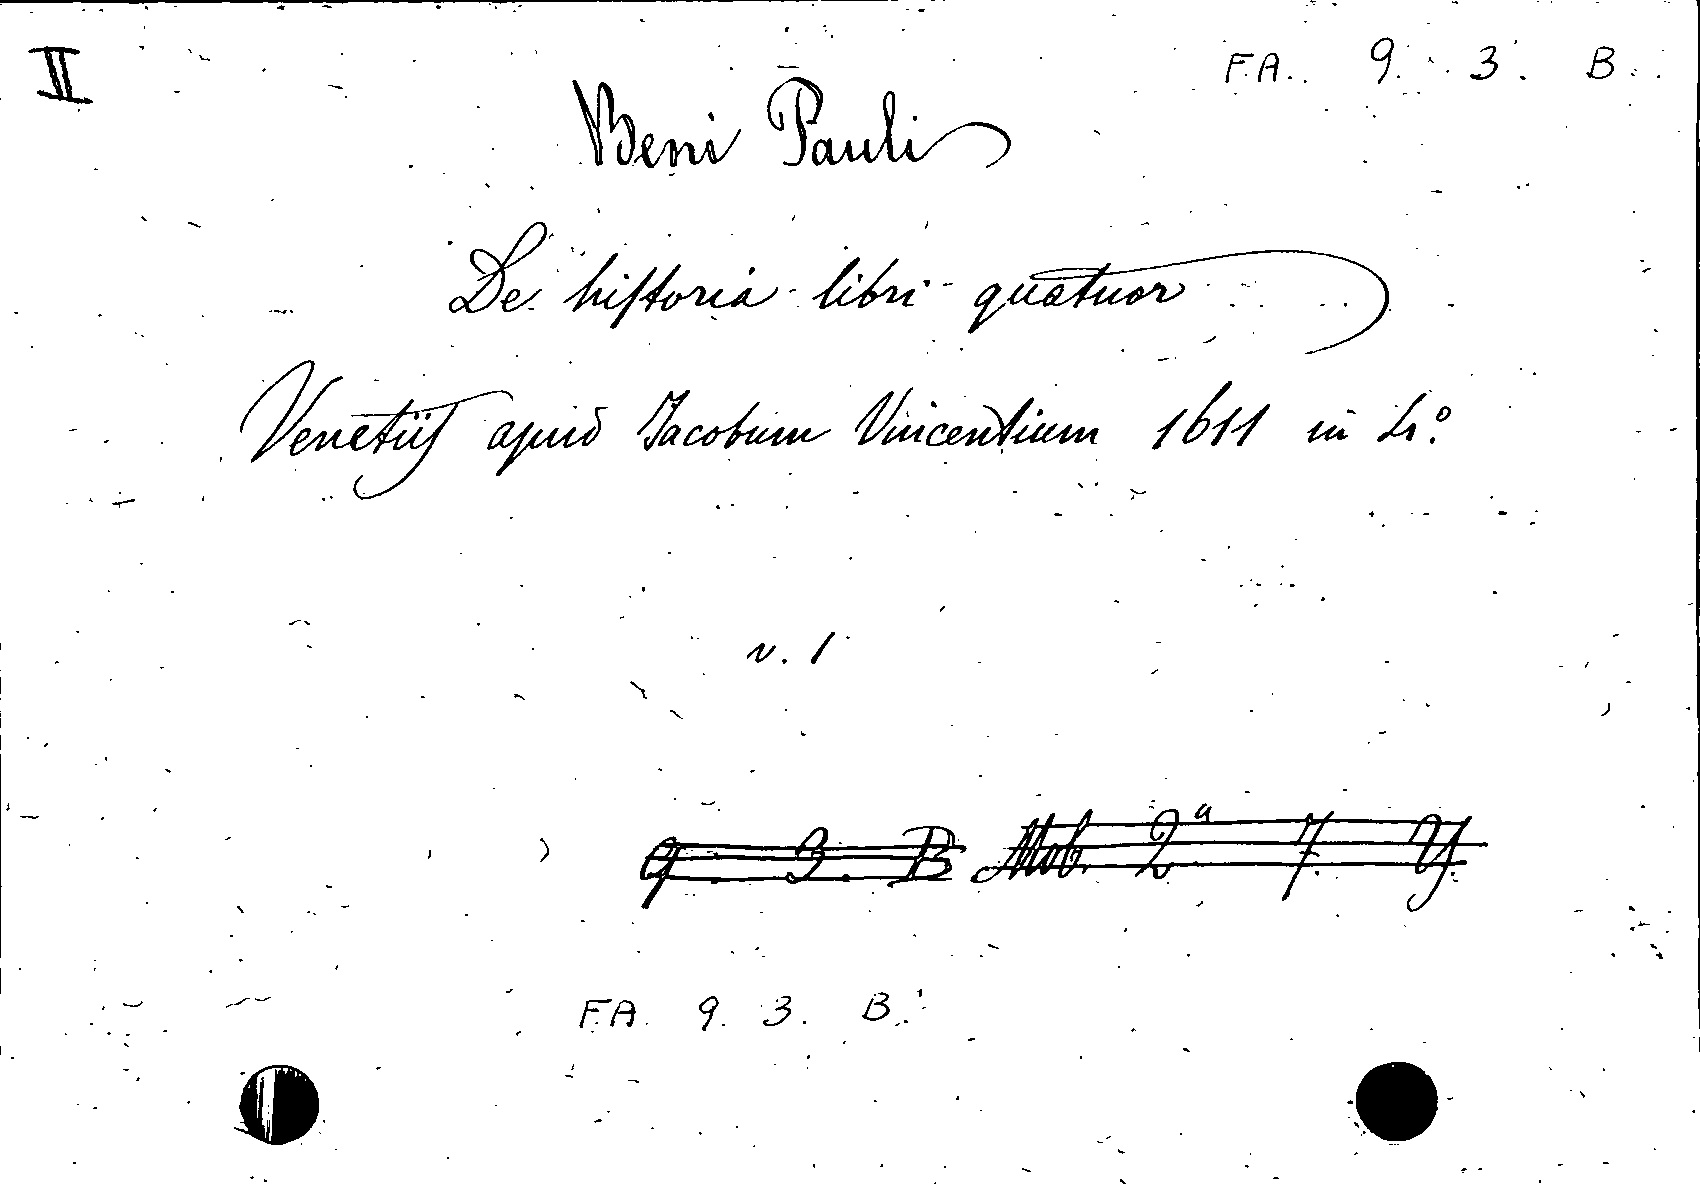 II
FA. 9. 3. B.
Beni Pauli
De historia libri quatuor
Venetijs apud Jacobum Vincentium 1611 in 4.º
v. 1
9. 3. B Mob. 2ª 7. Y.
FA. 9. 3. B.